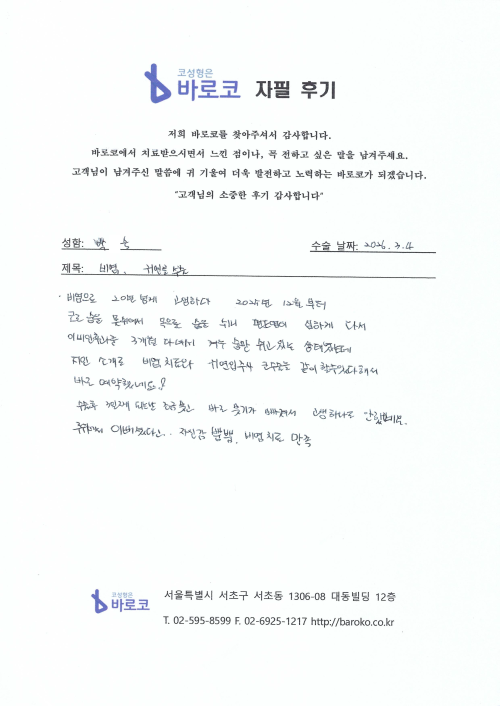 코성형은
바로코 자필 후기
저희 바로코를 찾아주셔서 감사합니다.
바로코에서 치료받으시면서 느낀 점이나, 꼭 전하고 싶은 말을 남겨주세요.
고객님이 남겨주신 말씀에 귀 기울여 더욱 발전하고 노력하는 바로코가 되겠습니다.
"고객님의 소중한 후기 감사합니다"
성함: 수술 날짜: 2026. 3. 4
제목: 비염,
비염으로 20년 넘게 고생하다 2025년 12월부터
코로 숨을 못쉬어서 목으로 숨을 쉬니 편도염이 심하게 와서
이비인후과를 3개월 다녀 겨우 숨만 쉬고 있는 상태였는데
지인 소개로 비염치료와 코수술을 같이 할수있다해서
바로 예약했네요?
수술후 3일째 바로 붓기가 빠져서 고생하나도 안했네요.
주위에서 이뻐졌다는.. 자신감 뿜뿜, 비염치료 만족
코성형은
바로코
서울특별시 서초구 서초동 1306-08 대동빌딩 12층
T. 02-595-8599 F. 02-6925-1217 http://baroko.co.kr